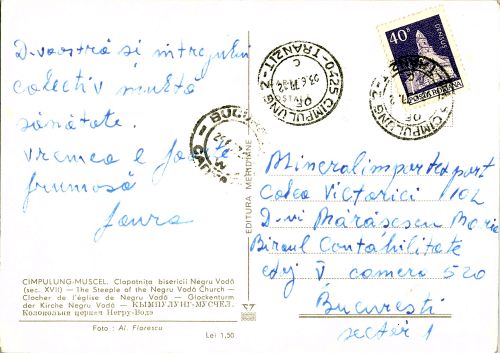 D-voastră și întregului
colectiv multă
sănătate.
Vremea e foarte
frumosă
Mineralimportexport
Calea Victoriei 102
D-vi Mărăsescu Maria
Biroul Contabilitate
etaj V camera 520
București
sector 1
40 B
0425 CIMPULUNG 2 - TRANZIT
EDITURA MERIDIANE
CIMPULUNG-MUSCEL. Clopotnița bisericii Negru Vodă
(sec. XVII) — The Steeple of the Negru Vodă Church —
Clocher de l'église de Negru Vodă — Glockenturm
der Kirche Negru Vodă — КЫМПУЛУНГ-МУСЧЕЛ.
Колокольня церкви Негру-Водэ
Foto : Al. Florescu
Lei 1,50